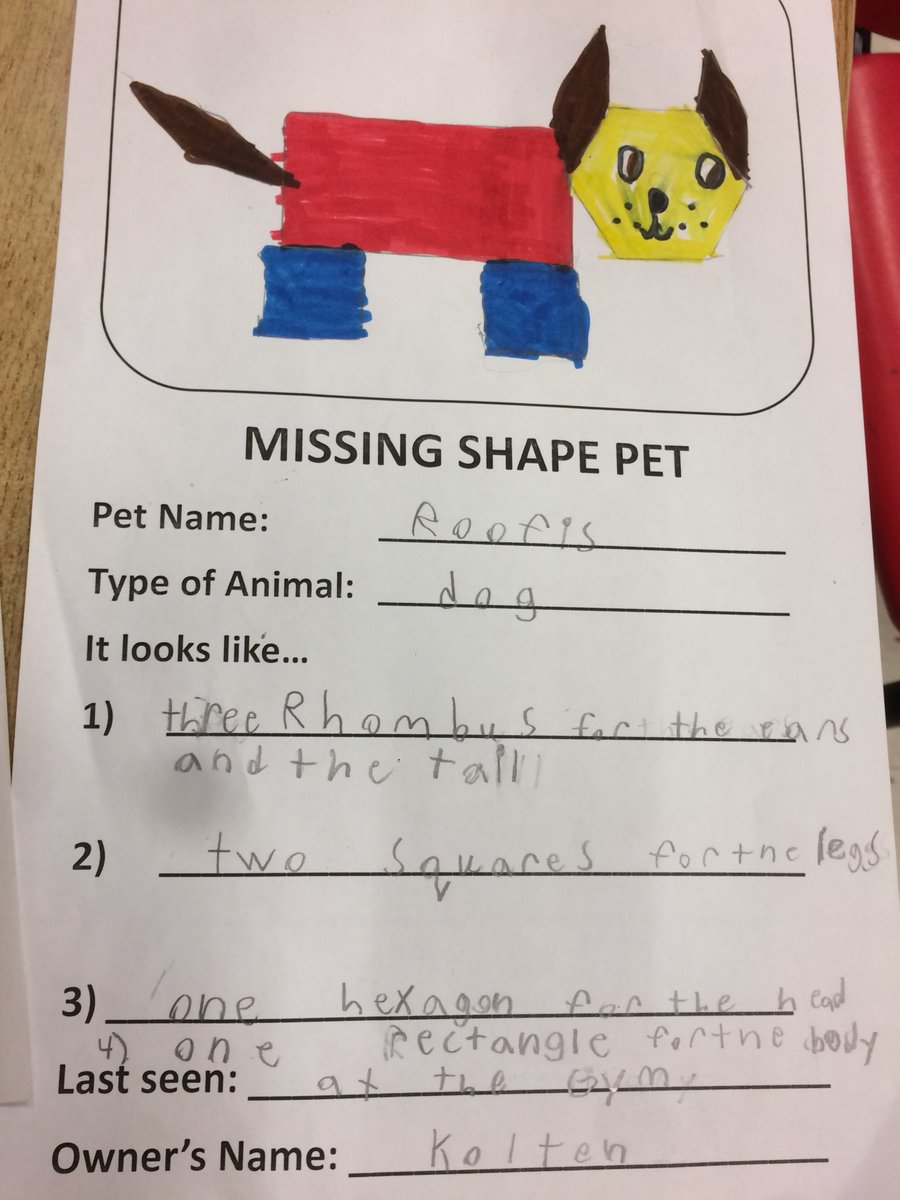 MISSING SHAPE PET
Pet Name: Roofis
Type of Animal: dog
It looks like...
1) three Rhombus for the ears
and the tail
2) two squares for the legs
3) one hexagon for the head
4) one Rectangle for the body
Last seen: at the Gym
Owner's Name: Kolten